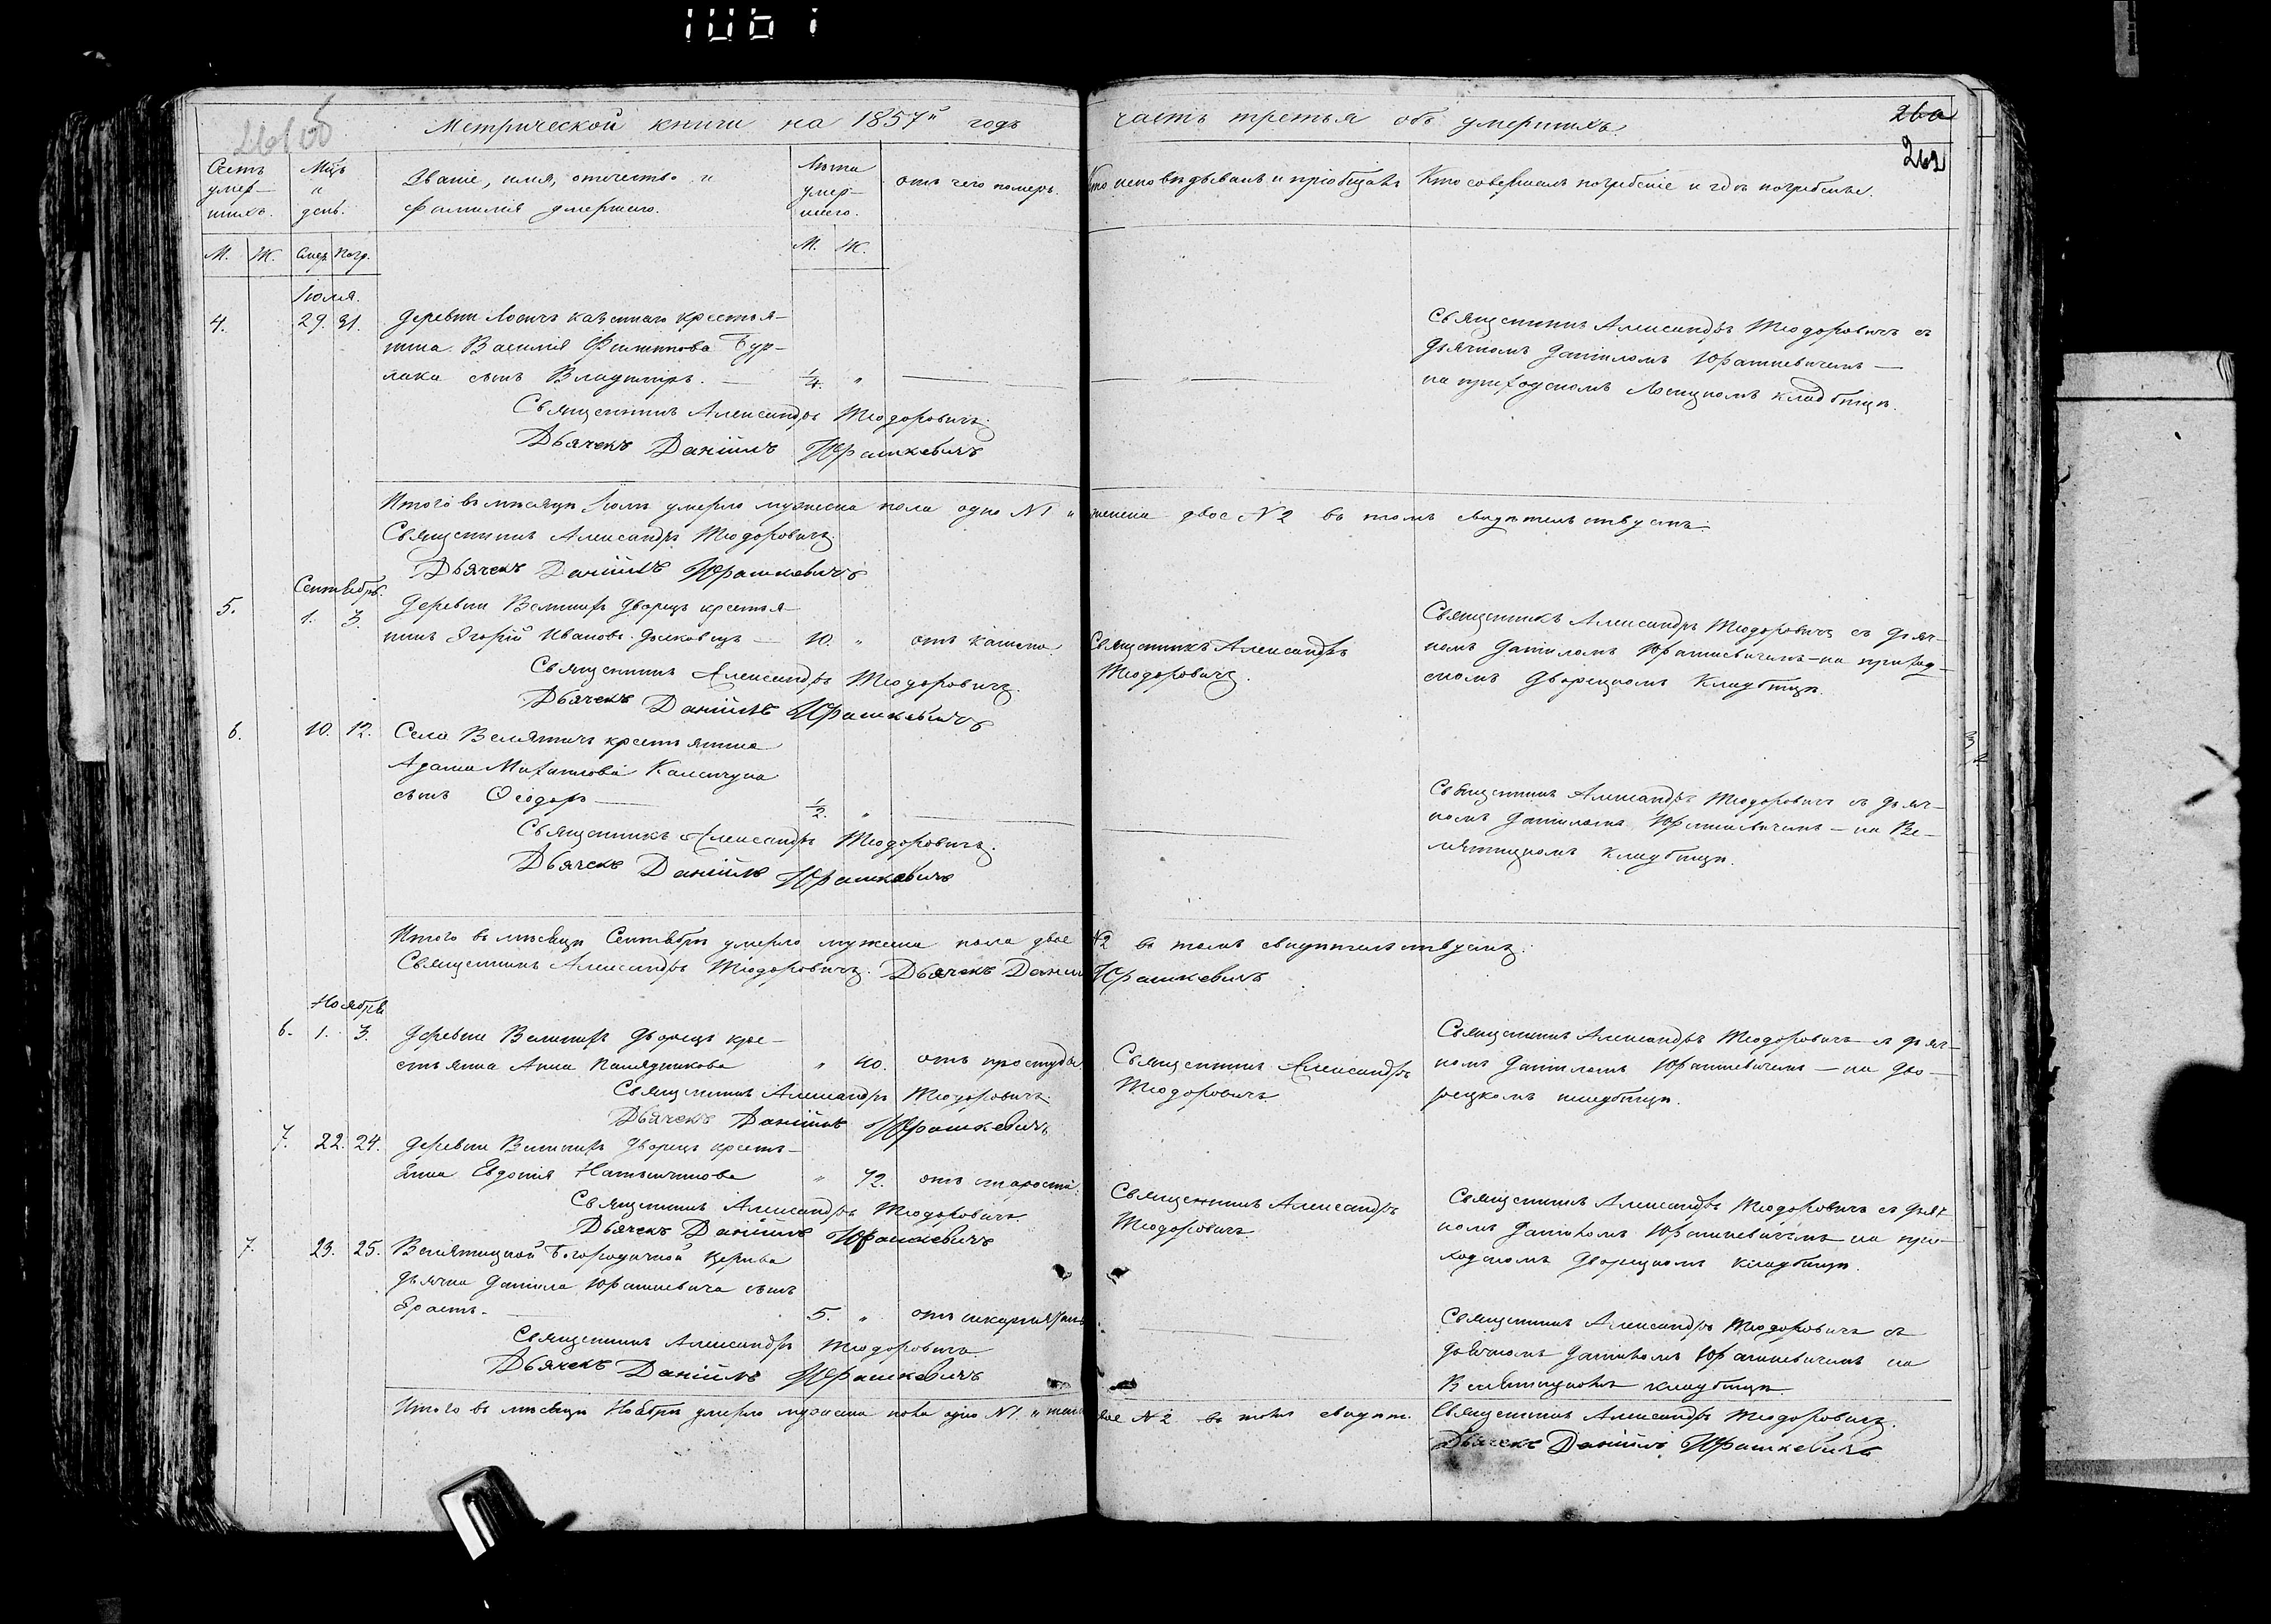 Метрической книги на 1857й годъ
часть третья объ умершихъ.
260
262
Счетъ умершихъ.
Мцъ и день.
Званіе, имя, отчество и фамилія умершаго.
Лѣта умершаго.
отъ чего померъ.
Кто исповѣдывалъ и пріобщалъ
Кто совершалъ погребеніе и гдѣ погребены.
М. Ж. Умер. Погр.
М. Ж.
Іюля.
4. 29. 31. Деревни Лосичъ казеннаго крестья-
нина Василія Филипова Бур-
лака сынъ Владиміръ. — 1/4. „ —
Священникъ Александръ Теодоровичъ
Дьячекъ Даніилъ Юрашкевичъ
Священникъ Александръ Теодоровичъ съ
дьячкомъ Даніиломъ Юрашкевичемъ —
на приходскомъ Лосицкомъ кладбищѣ.
Итого въ мѣсяцѣ Іюлѣ умерло мужеска пола одно N 1 и женска двое N 2 въ томъ свидѣтельствуемъ:
Священникъ Александръ Теодоровичъ
Дьячекъ Даніилъ Юрашкевичъ
Сентябрь.
5. 1. 3. Деревни Дворецъ крестья-
нинъ Игорій Ивановъ — 10. „ отъ кашля
Священникъ Александръ Теодоровичъ.
Дьячекъ Даніилъ Юрашкевичъ
Священникъ Александръ
Теодоровичъ.
Священникъ Александръ Теодоровичъ съ дьяч-
комъ Даніиломъ Юрашкевичемъ — на приход-
скомъ Дворецкомъ Кладбищѣ.
6. 10. 12. Села Велятичъ крестьянина
Адама Михаилова
сынъ Ѳеодоръ — 1/2. „ —
Священникъ Александръ Теодоровичъ.
Дьячекъ Даніилъ Юрашкевичъ
Священникъ Александръ Теодоровичъ съ дьяч-
комъ Даніиломъ Юрашкевичемъ — на Ве-
лятицкомъ кладбищѣ.
Итого въ мѣсяцѣ Сентябрѣ умерло мужеска пола двое N2 въ томъ свидѣтельствуемъ:
Священникъ Александръ Теодоровичъ. Дьячекъ Даніилъ Юрашкевичъ
Ноябрь
6. 1. 3. Деревни Дворецъ кре-
стьянка Анна „ 40. отъ простуды.
Священникъ Александръ Теодоровичъ.
Дьячекъ Даніилъ Юрашкевичъ
Священникъ Александръ
Теодоровичъ
Священникъ Александръ Теодоровичъ съ дьяч-
комъ Даніиломъ Юрашкевичемъ — на Дво-
рецкомъ кладбищѣ.
7. 22. 24. Деревни Дворецъ кресть-
янка Евдокія „ 72. отъ старости.
Священникъ Александръ Теодоровичъ.
Дьячекъ Даніилъ Юрашкевичъ
Священникъ Александръ
Теодоровичъ
Священникъ Александръ Теодоровичъ съ дьяч-
комъ Даніиломъ Юрашкевичемъ на при-
ходскомъ Дворецкомъ кладбищѣ.
7. 23. 25. Велятицкой Богородичной Церкви
дьячка Даніила Юрашкевича сынъ
Ерастъ. — 5. „ отъ
Священникъ Александръ Теодоровичъ
Дьячекъ Даніилъ Юрашкевичъ
Священникъ Александръ Теодоровичъ съ
дьячкомъ Даніиломъ Юрашкевичемъ на
Велятицкомъ кладбищѣ.
Итого въ мѣсяцѣ Ноябрѣ умерло мужеска пола одно N 1. и двое N 2 въ томъ свидѣт. Священникъ Александръ Теодоровичъ.
Дьячекъ Даніилъ Юрашкевичъ